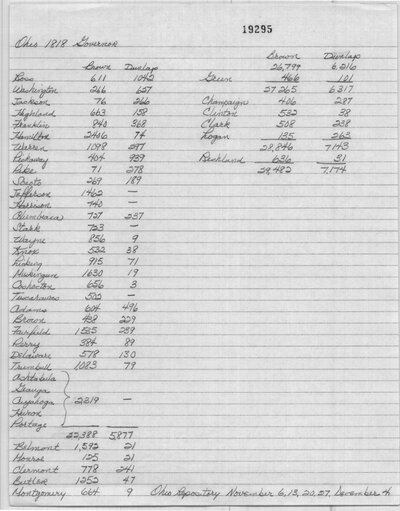 19295
Ohio 1818 Governor
Brown Dunlap
Ross 611 1042
Washington 266 627
Jackson 76 266
Highland 663 158
Franklin 840 368
Hamilton 2406 74
Warren 1098 297
Pickaway 404 939
Pike 71 278
Scioto 269 189
Jefferson 1462 —
Harrison 740 —
Columbiana 727 237
Stark 723 —
Wayne 856 9
Knox 532 38
Licking 915 71
Muskingum 1630 19
Coshocton 656 3
Tuscarawas 502 —
Adams 604 496
Brown 498 229
Fairfield 1535 239
Perry 384 89
Delaware 578 130
Trumbull 1023 79
Ashtabula
Geauga
Cuyahoga 2319 —
Huron
Portage
22,388 5,877
Belmont 1,592 21
Monroe 125 21
Clermont 778 241
Butler 1252 47
Montgomery 664 9
Brown Dunlap
26,799 6,216
Green 466 101
27,265 6317
Champaign 406 287
Clinton 532 38
Clark 508 238
Logan 135 263
28,846 7143
Richland 636 31
29,482 7,174
Ohio Repository November 6, 13, 20, 27, December 4